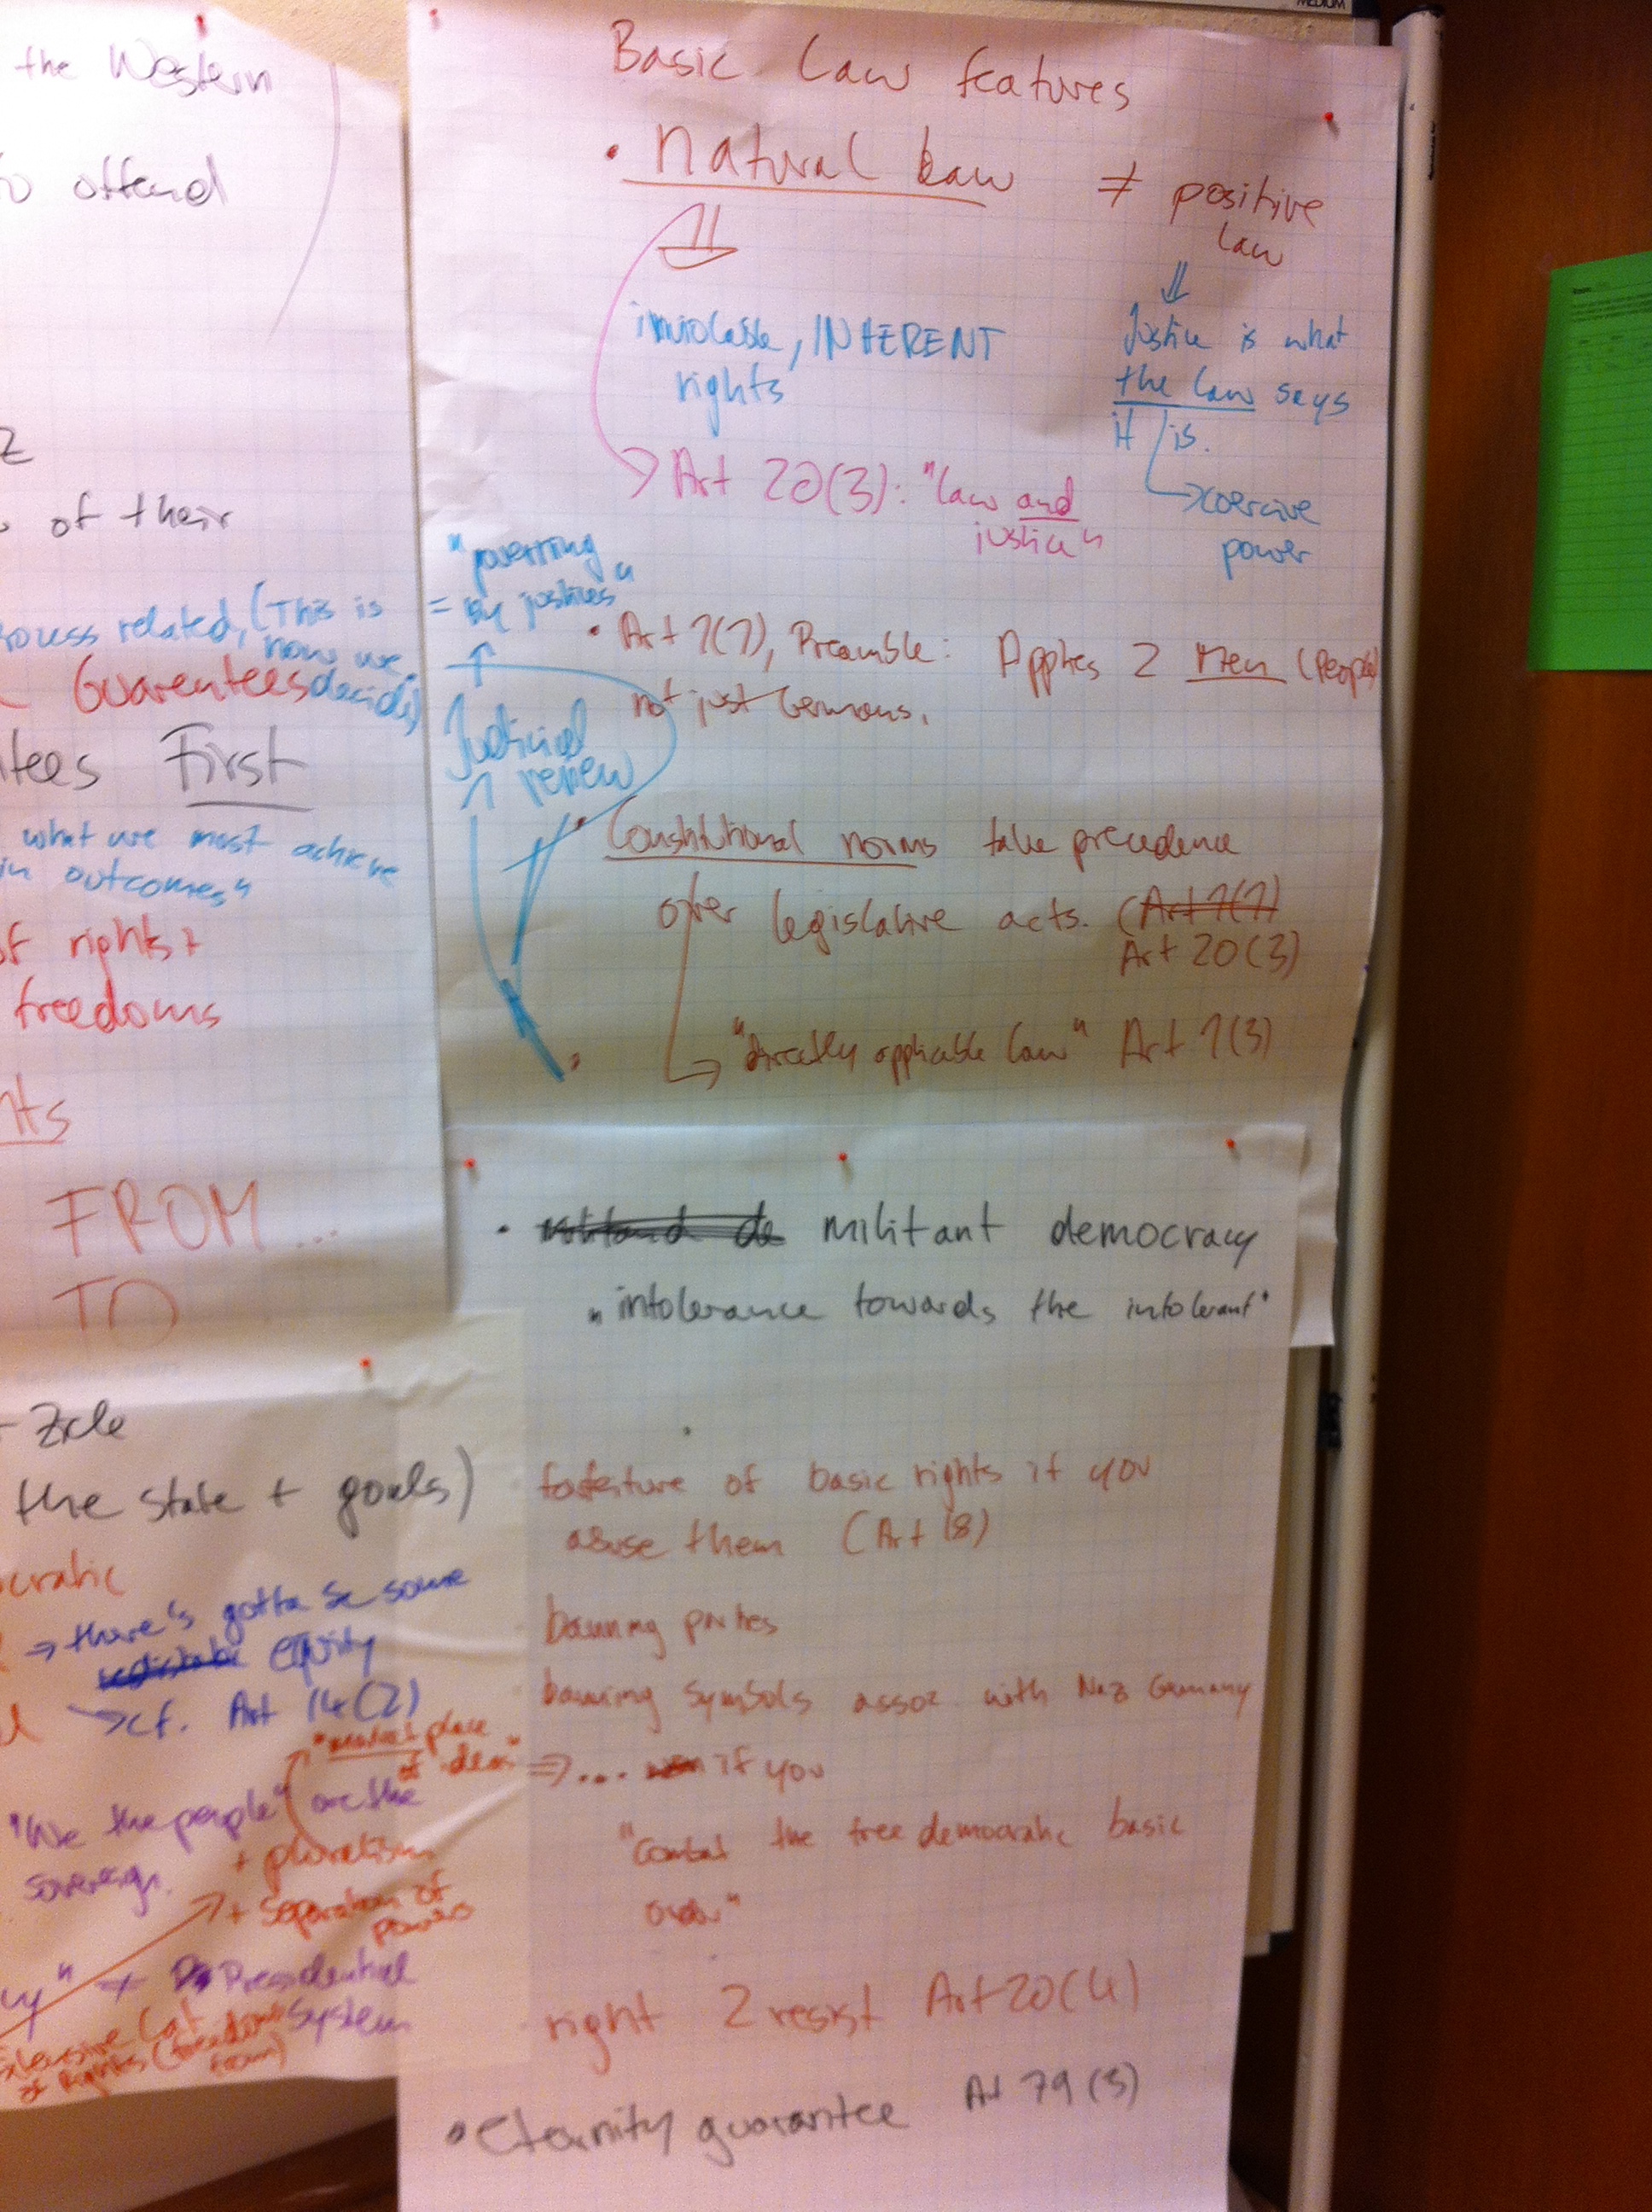 MEDIUM
the Western
offend
of their
related, (This is
how we
Guarentees decide)
First
what we must achieve
in outcomes"
of rights +
freedoms
FROM...
TO
the state + goals)
→ there's gotta be some
equity
→ cf. Art 14(2)
"market place
of ideas"
"We the people" are the
sovereign.
+ pluralism
+ separation of
powers
≠ Presidential
System
Extensive Cat
of Rights (freedom
from)
Basic Law features
• Natural Law ≠ positive
law
inviolable, INHERENT
rights
Justice is what
the law says
it is.
→ coercive
power
→ Art 20(3): "law and
justice"
"governing
= by justices"
Judicial
review
• Art 1(1), Preamble: Applies 2 Men (People)
not just Germans.
• Constitutional norms take precedence
over legislative acts. (Art 1(1)
Art 20(3)
→ "directly applicable law" Art 1(3)
• militant democracy
"intolerance towards the intolerant"
forfeiture of basic rights if you
abuse them (Art 18)
banning parties
banning symbols assoz with Naz Germany
⇒ ... if you
"combat the free democratic basic
order"
right 2 resist Art 20(4)
• Eternity guarantee Art 79(3)